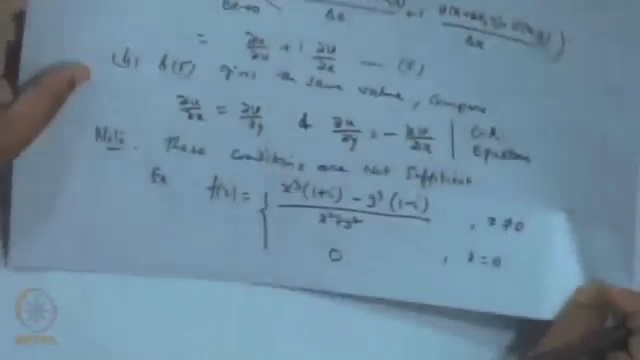 Δx→0 Δx + i Δx
= ∂u/∂x + i ∂v/∂x — (5)
gives the same value, compare
∂u/∂x = ∂v/∂y & ∂u/∂y = - ∂v/∂x | C-R Equations
Note. These conditions are not sufficient
Ex f(z) = { x³(1+i) - y³(1-i) / x²+y² , z ≠ 0
0 , z = 0
NPTEL